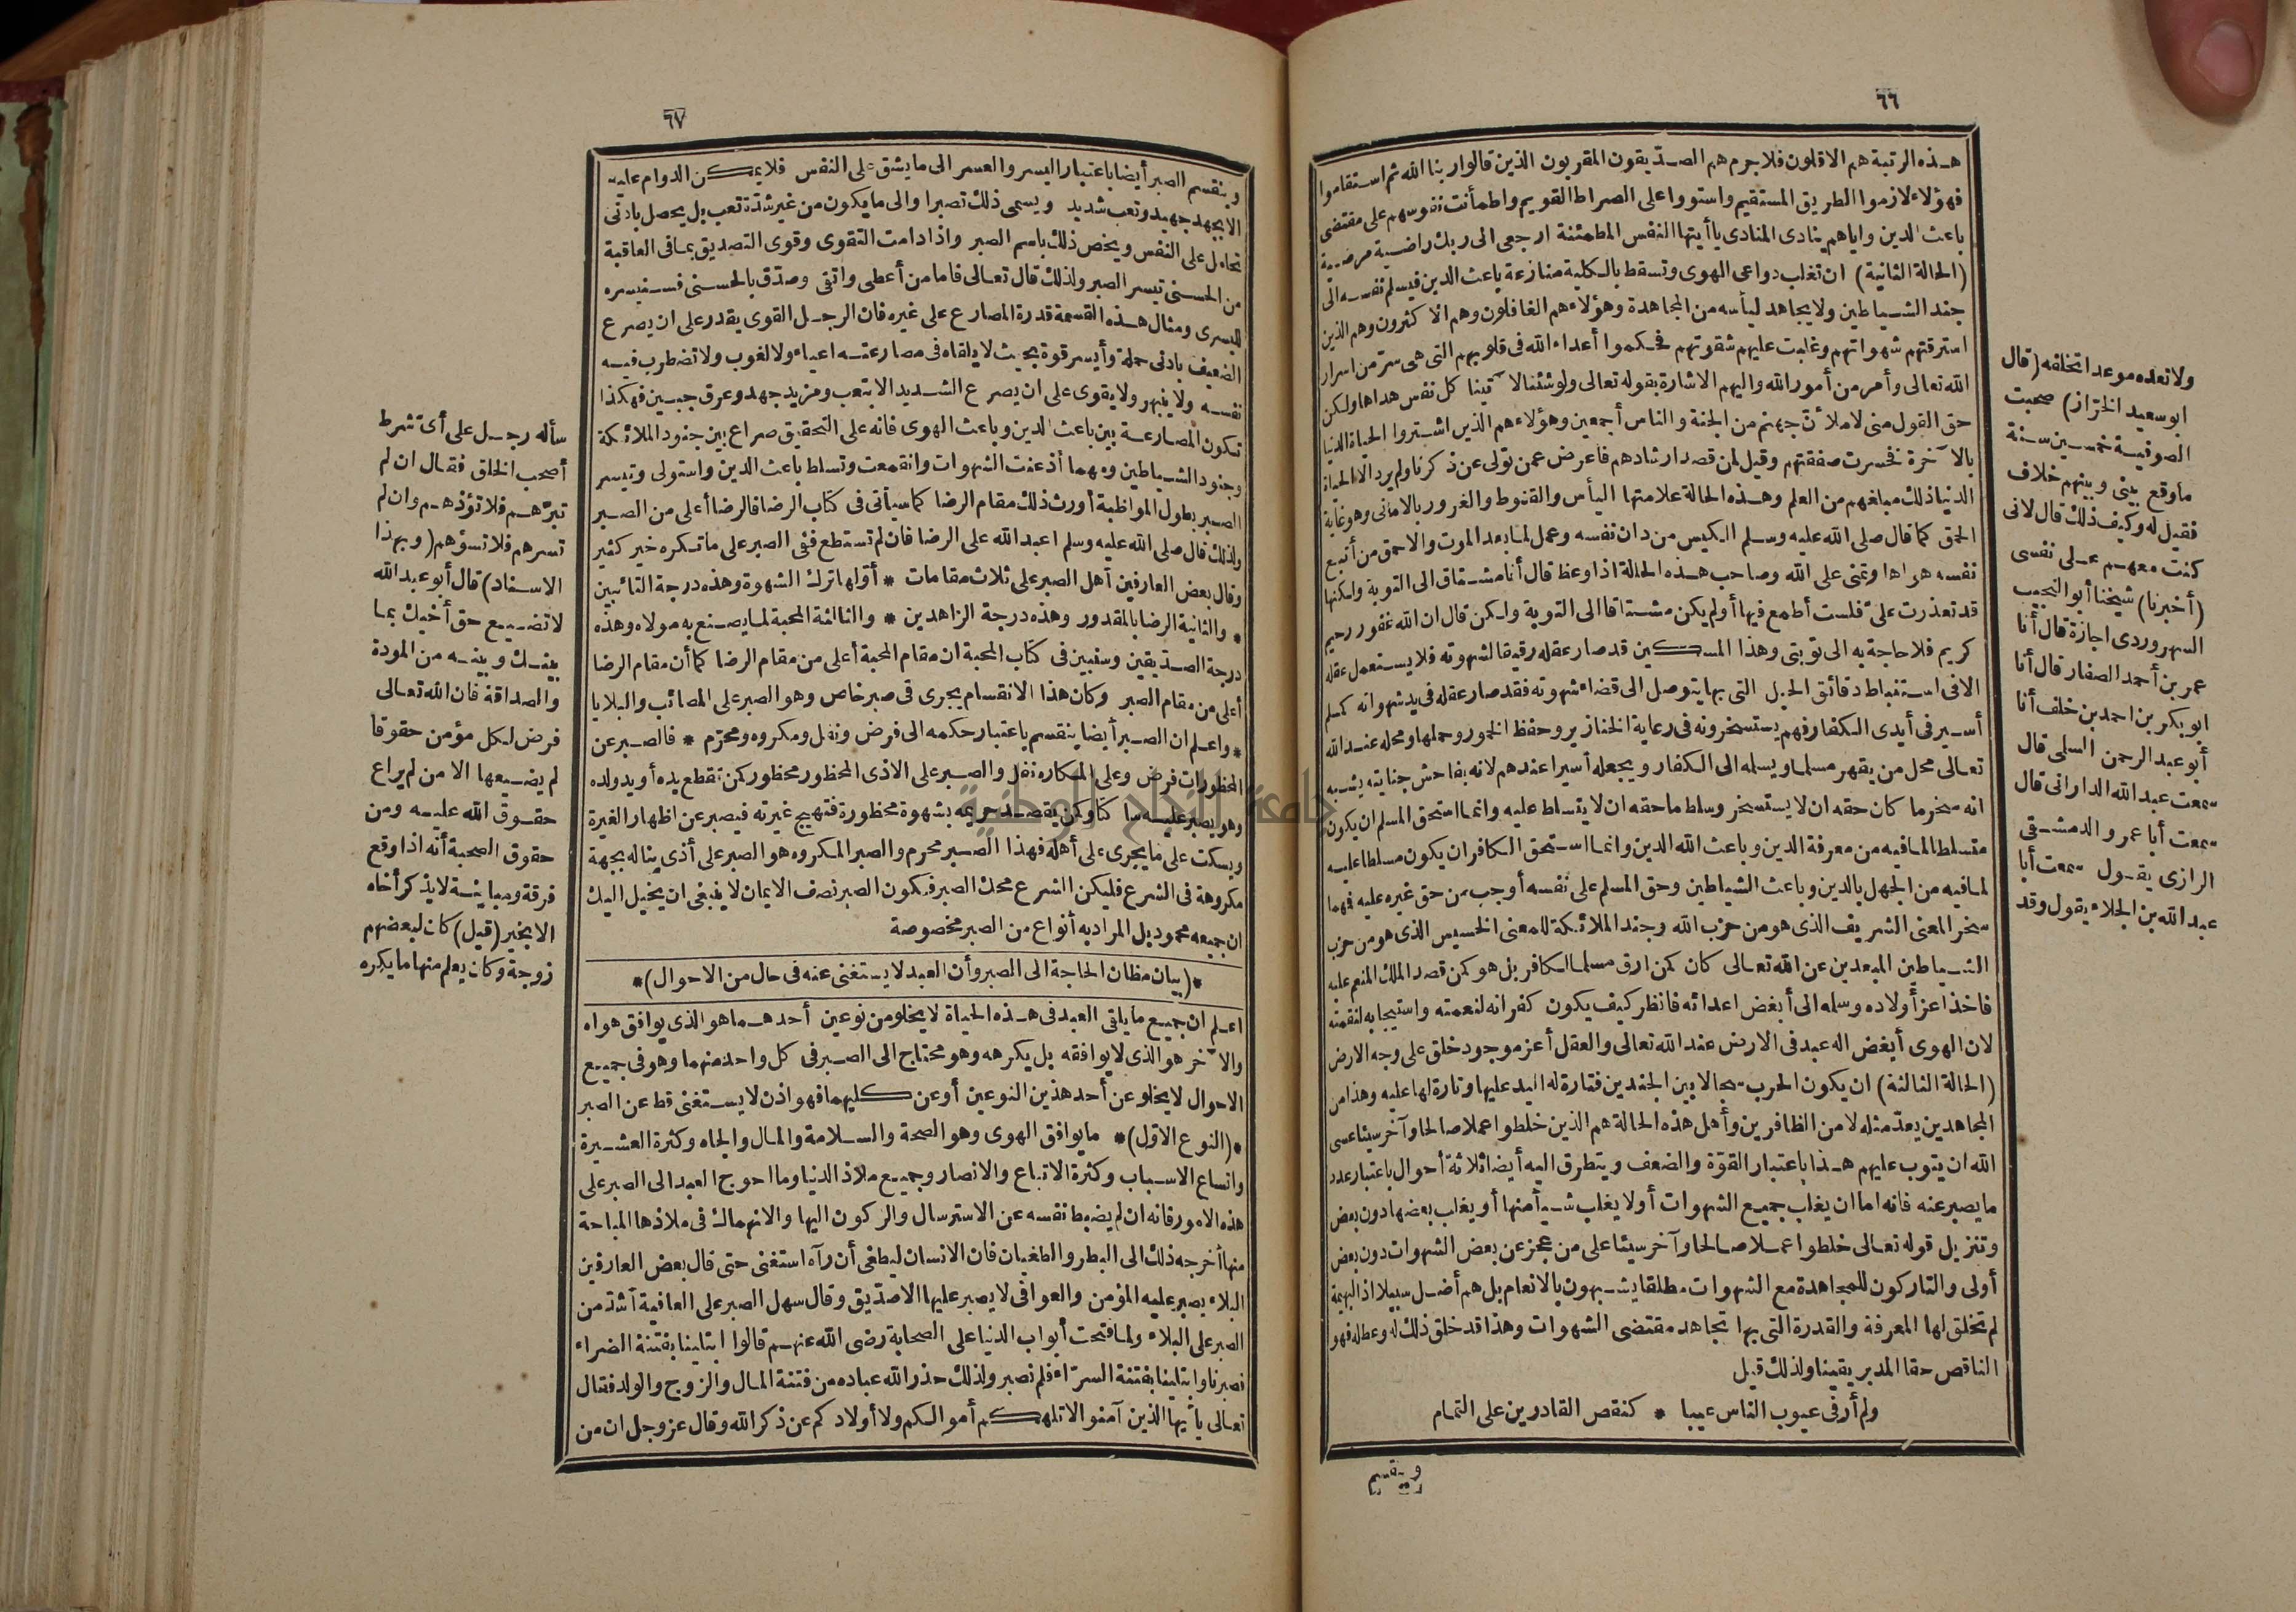 ٦٦
هذه الرتبة هم الاقلون فلا جرم هم الصديقون المقربون الذين قالوا ربنا الله ثم استقاموا
فهؤلاء لازموا الطريق المستقيم واستووا على الصراط القويم واطمأنت نفوسهم على مقتضى
باعث الدين واياهم ينادى المنادى ياأيتها النفس المطمئنة ارجعى الى ربك راضية مرضية
(الحالة الثانية) ان تغلب دواعى الهوى وتسقط بالكلية منازعة باعث الدين فيسلم نفسه الى
جند الشياطين ولا يجاهد ليأسه من المجاهدة وهؤلاء هم الغافلون وهم الاكثرون وهم الذين
استرقتهم شهواتهم وغلبت عليهم شقوتهم فحكموا أعداء الله فى قلوبهم التى هى سر من اسرار
الله تعالى وأمر من أمور الله واليهم الاشارة بقوله تعالى ولو شئنا لا تينا كل نفس هداها ولكن
حق القول منى لاملأن جهنم من الجنة والناس أجمعين وهؤلاء هم الذين اشتروا الحياة الدنيا
بالآخرة فخسرت صفقتهم وقيل لمن قصد ارشادهم فأعرض عمن تولى عن ذكرنا ولم يرد الا الحياة
الدنيا ذلك مبلغهم من العلم وهذه الحالة علامتها اليأس والقنوط والغرور بالامانى وهو غاية
الحمق كما قال صلى الله عليه وسلم الكيس من دان نفسه وعمل لما بعد الموت والاحمق من أتبع
نفسه هواها وتمنى على الله وصاحب هذه الحالة اذا وعظ قال أنا مشتاق الى التوبة ولكنها
قد تعذرت علىّ فلست أطمع فيها أو لم يكن مشتاقا الى التوبة ولكن قال ان الله غفور رحيم
كريم فلا حاجة به الى توبتى وهذا المسكين قد صار عقله رقيقا لشهوته فلا يستعمل عقله
الا فى استنباط دقائق الحيل التى بها يتوصل الى قضاء شهوته فقد صار عقله فى يد شهواته كمسلم
أسير فى أيدى الكفار فهم يستسخرونه فى رعاية الخنازير وحفظ الخمور وحملها ومحله عند الله
تعالى محل من يقهر مسلما ويسله الى الكفار ويجعله أسيرا عندهم لانه بفاحش جنايته يشبه
انه سخر ما كان حقه ان لا يستسخر وسلط ما حقه ان لا يتسلط عليه وانما استحق المسلم ان يكون
متسلطا لما فيه من معرفة الدين وباعث الله الدين وانما استحق الكافر ان يكون مسلطا عليه
لما فيه من الجهل بالدين وباعث الشياطين وحق المسلم على نفسه أوجب من حق غيره عليه فهما
سخر المعنى الشريف الذى هو من حزب الله وجند الملائكة للمعنى الخسيس الذى هو من حزب
الشياطين المبعدين عن الله تعالى كان كمن ارق مسلما لكافر بل هو كمن قصد الملك المنعم عليه
فاخذ اعز أولاده وسلمه الى أبغض اعدائه فانظر كيف يكون كفرانه لنعمته واستيجابه لنقمته
لان الهوى أبغض اله عبد فى الارض عند الله تعالى والعقل أعز موجود خلق على وجه الارض
(الحالة الثالثة) ان يكون الحرب سجالا بين الجندين فتارة له اليد عليها وتارة لها عليه وهذا من
المجاهدين يعدّ مثله لا من الظافرين وأهل هذه الحالة هم الذين خلطوا عملا صالحا وآخر سيئا عسى
الله ان يتوب عليهم هذا باعتبار القوّة والضعف ويتطرق اليه أيضا ثلاثة أحوال باعتبار عدد
ما يصبر عنه فانه اما ان يغلب جميع الشهوات أو لا يغلب شيأ منها أو يغلب بعضها دون بعض
وتنزيل قوله تعالى خلطوا عملا صالحا وآخر سيئا على من عجز عن بعض الشهوات دون بعض
أولى والتاركون للمجاهدة مع الشهوات مطلقا يشبهون بالانعام بل هم أضل سبيلا اذ البهيمة
لم تخلق لها المعرفة والقدرة التى بها تجاهد مقتضى الشهوات وهذا قد خلق ذلك له وعطله فهو
الناقص حقا المدبر يقينا ولذلك قيل
ولم أر فى عيوب الناس عيبا * كنقص القادرين على التمام
وينقسم
ولا تعده موعدا تخلفه (قال
ابو سعيد الخرّاز) صحبت
الصوفية خمسين سنة
ما وقع بينى وبينهم خلاف
فقيل له وكيف ذلك قال لانى
كنت معهم على نفسى
(أخبرنا) شيخنا أبو النجيب
السهروردى اجازة قال أنا
عمر بن أحمد الصفار قال أنا
ابو بكر بن احمد بن خلف أنا
أبو عبد الرحمن السلمى قال
سمعت عبد الله الدارانى قال
سمعت أبا عمرو الدمشقى
الرازى يقول سمعت أبا
عبد الله بن الجلاء يقول وقد
٦٧
وينقسم الصبر أيضا باعتبار اليسر والعسر الى ما يشق على النفس فلا يمكن الدوام عليه
الا بجهد جهيد وتعب شديد ويسمى ذلك تصبرا والى ما يكون من غير شدّة تعب بل يحصل بادنى
تحامل على النفس ويخص ذلك باسم الصبر واذا دامت التقوى وقوى التصديق بما فى العاقبة
من الحسنى تيسر الصبر ولذلك قال تعالى فاما من أعطى واتقى وصدّق بالحسنى فسنيسره
لليسرى ومثال هذه القسمة قدرة المصارع على غيره فان الرجل القوى يقدر على ان يصرع
الضعيف بادنى حملة وأيسر قوة بحيث لا يلقاه فى مصارعته اعياء ولا لغوب ولا تضطرب فيه
نفسه ولا ينبهر ولا يقوى على ان يصرع الشديد الا بتعب ومزيد جهد وعرق جبين فهكذا
تكون المصارعة بين باعث الدين وباعث الهوى فانه على التحقيق صراع بين جنود الملائكة
وجنود الشياطين ومهما أذعنت الشهوات وانقمعت وتسلط باعث الدين واستولى وتيسر
الصبر بطول المواظبة أورث ذلك مقام الرضا كما سيأتى فى كتاب الرضا فالرضا أعلى من الصبر
ولذلك قال صلى الله عليه وسلم اعبد الله على الرضا فان لم تستطع ففى الصبر على ما تكره خير كثير
وقال بعض العارفين أهل الصبر على ثلاث مقامات * أوّلها ترك الشهوة وهذه درجة التائبين
* والثانية الرضا بالمقدور وهذه درجة الزاهدين * والثالثة المحبة لما يصنع به مولاه وهذه
درجة الصدّيقين وسنبين فى كتاب المحبة ان مقام المحبة أعلى من مقام الرضا كما أن مقام الرضا
أعلى من مقام الصبر وكان هذا الانقسام يجرى فى صبر خاص وهو الصبر على المصائب والبلايا
* واعلم ان الصبر أيضا ينقسم باعتبار حكمه الى فرض ونفل ومكروه ومحرّم * فالصبر عن
المحظورات فرض وعلى المكاره نفل والصبر على الاذى المحظور محظور كمن تقطع يده أو يد ولده
وهو يصبر عليه ساكتا وكمن يقصد حريمه بشهوة محظورة فتهيج غيرته فيصبر عن اظهار الغيرة
ويسكت على ما يجرى على أهله فهذا الصبر محرم والصبر المكروه هو الصبر على أذى يناله بجهة
مكروهة فى الشرع فليكن الشرع محك الصبر فيكون الصبر نصف الايمان لا ينبغى ان يخيل اليك
ان جميعه محمود بل المراد به أنواع من الصبر مخصوصة
*(بيان مظان الحاجة الى الصبر وأن العبد لا يستغنى عنه فى حال من الاحوال)*
اعلم ان جميع ما يلقى العبد فى هذه الحياة لا يخلو من نوعين أحدهما هو الذى يوافق هواه
والآخر هو الذى لا يوافقه بل يكرهه وهو محتاج الى الصبر فى كل واحد منهما وهو فى جميع
الاحوال لا يخلو عن أحد هذين النوعين أو عن كليهما فهو اذن لا يستغنى قط عن الصبر
*(النوع الاوّل)* ما يوافق الهوى وهو الصحة والسلامة والمال والجاه وكثرة العشيرة
واتساع الاسباب وكثرة الاتباع والانصار وجميع ملاذ الدنيا وما احوج العبد الى الصبر على
هذه الامور فانه ان لم يضبط نفسه عن الاسترسال والركون اليها والانهماك فى ملاذها المباحة
منها أخرجه ذلك الى البطر والطغيان فان الانسان ليطغى أن رآه استغنى حتى قال بعض العارفين
البلاء يصبر عليه المؤمن والعوافى لا يصبر عليها الا صدّيق وقال سهل الصبر على العافية أشدّ من
الصبر على البلاء ولما فتحت أبواب الدنيا على الصحابة رضى الله عنهم قالوا ابتلينا بفتنة الضراء
فصبرنا وابتلينا بفتنة السرّاء فلم نصبر ولذلك حذر الله عباده من فتنة المال والزوج والولد فقال
تعالى ياأيها الذين آمنوا لا تلهكم أموالكم ولا أولادكم عن ذكر الله وقال عز وجل ان من
سأله رجل على أى شرط
أصحب الخلق فقال ان لم
تبرّهم فلا تؤذهم وان لم
تسرهم فلا تسؤهم (وبهذا
الاسناد) قال أبو عبد الله
لا تضيع حق أخيك بما
بينك وبينه من المودة
والصداقة فان الله تعالى
فرض لكل مؤمن حقوقا
لم يضيعها الا من لم يراع
حقوق الله عليه ومن
حقوق الصحبة أنه اذا وقع
فرقة ومباينة لا يذكر أخاه
الا بخير (قيل) كان لبعضهم
زوجة وكان يعلم منها ما يكره
جامعة النجاح الوطنية